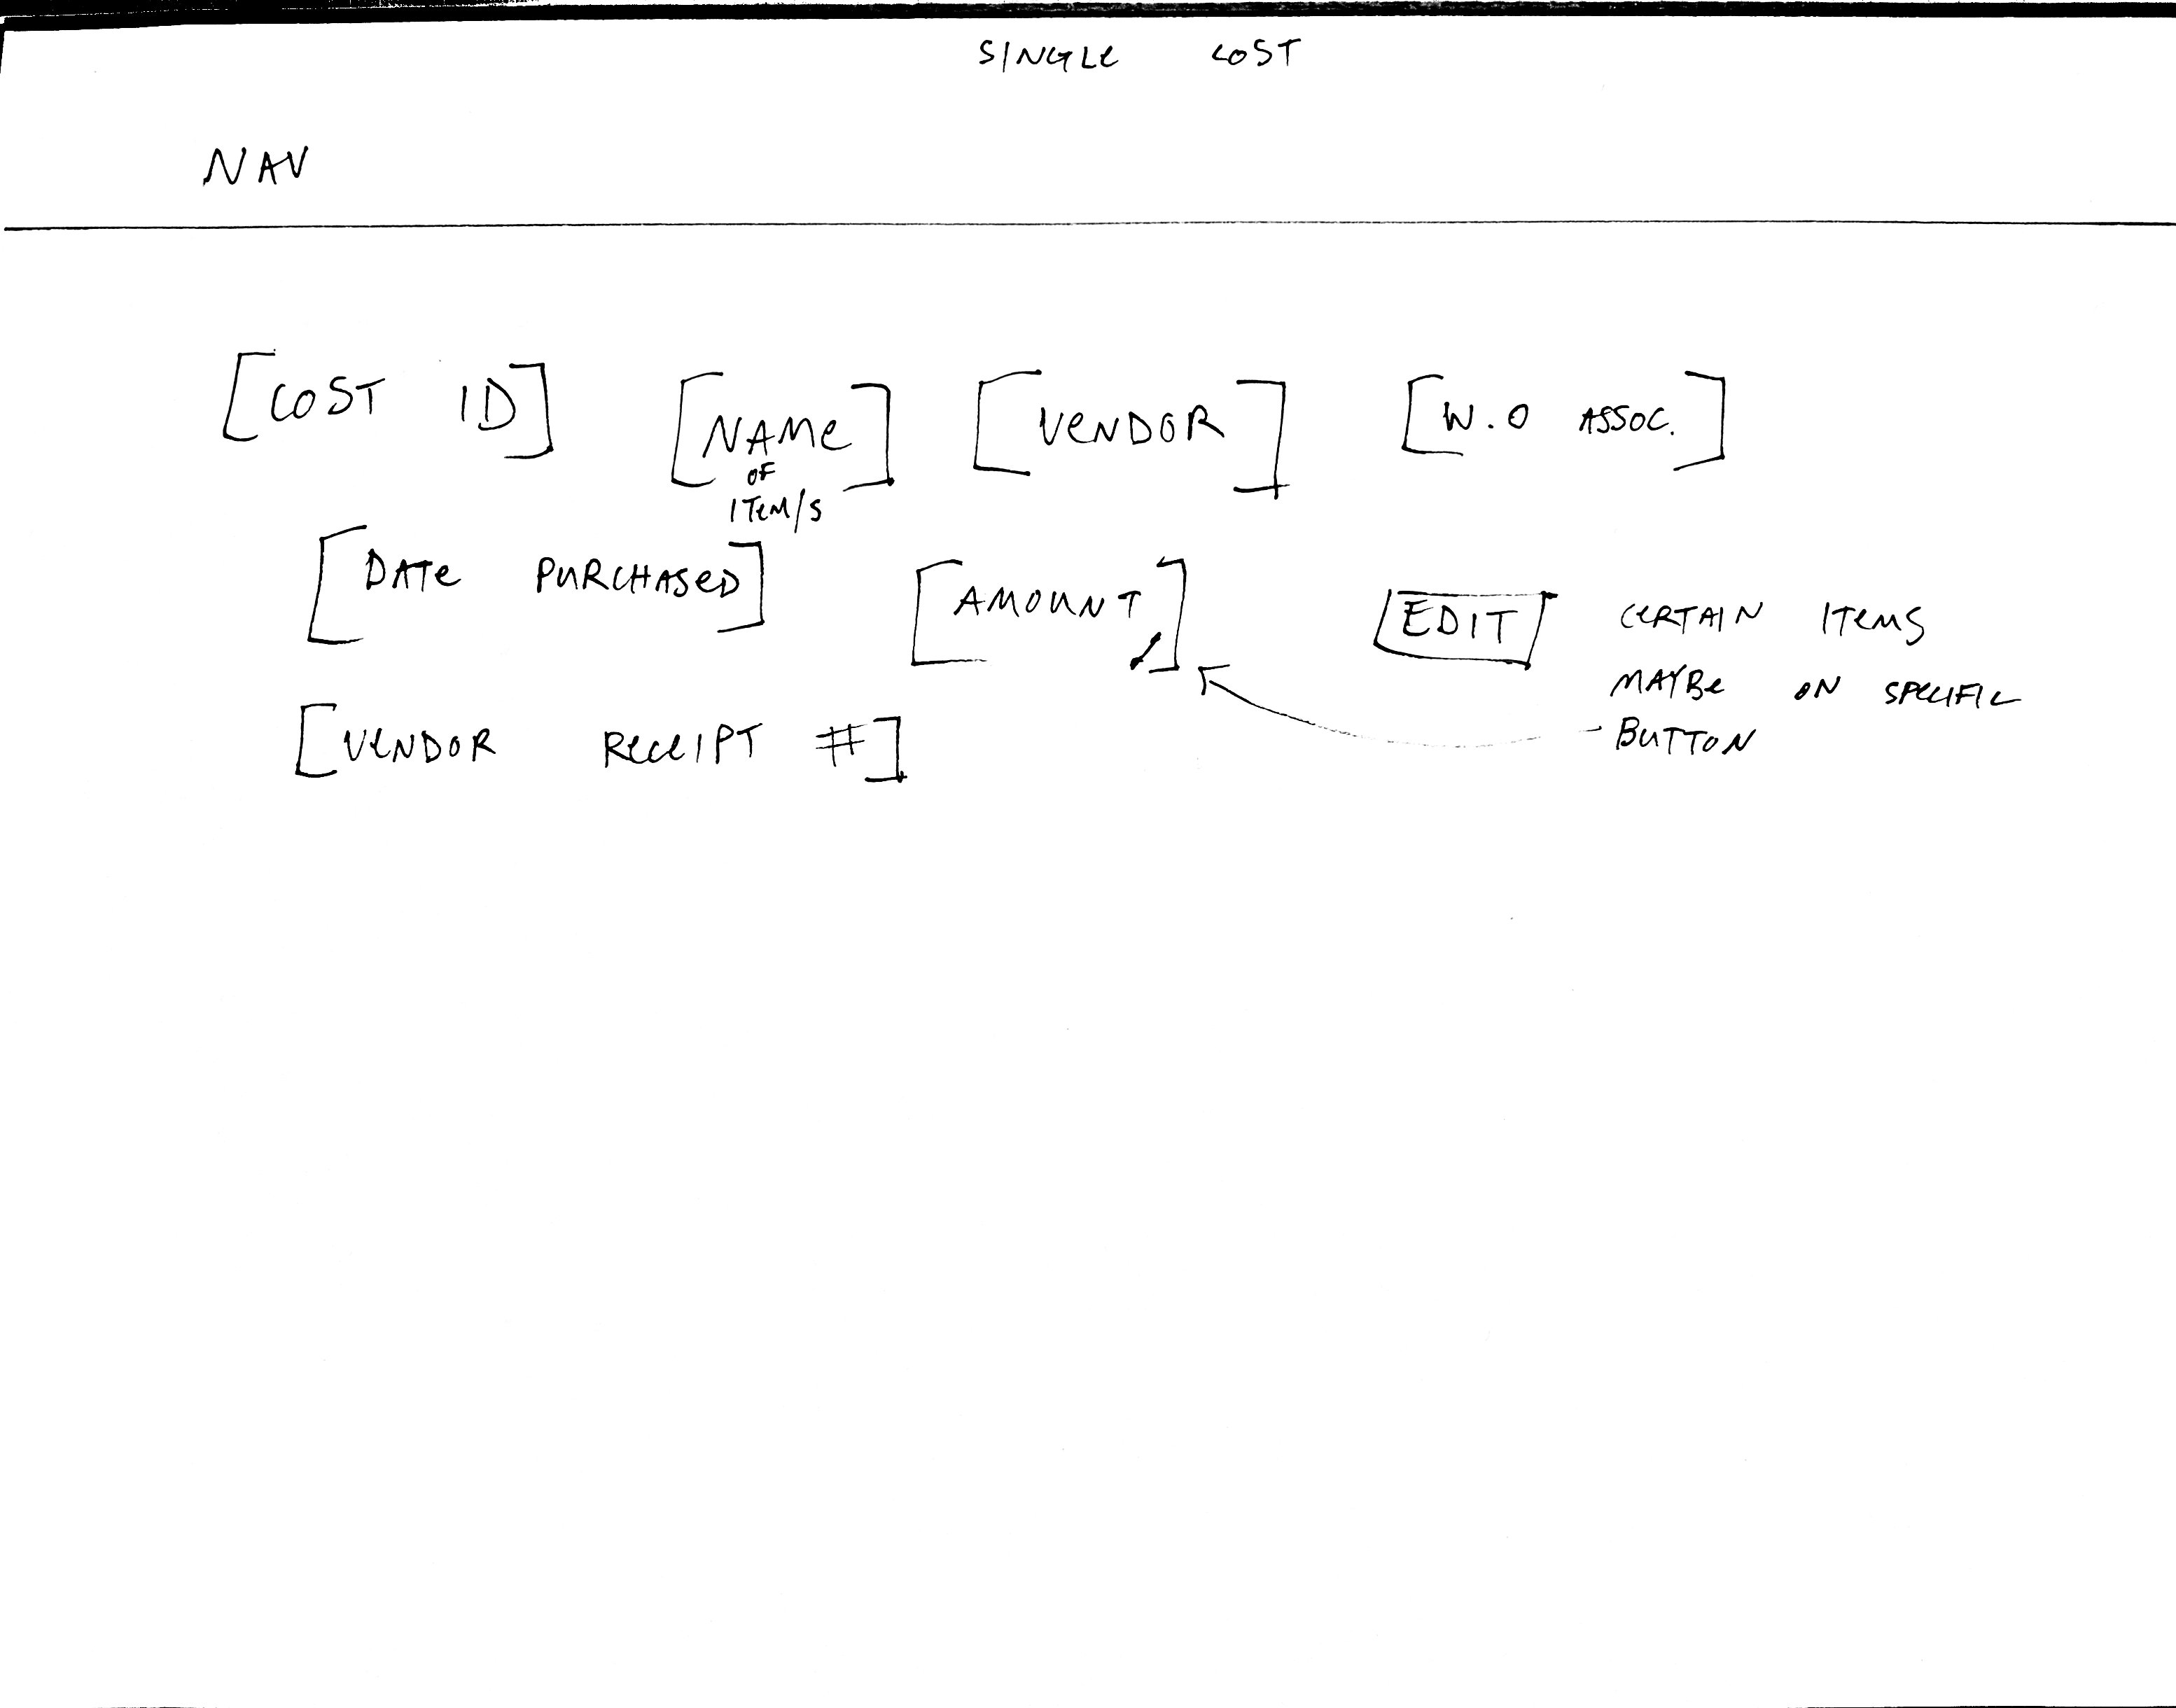 SINGLE COST
NAV
[COST ID] [NAME OF ITEM/S] [VENDOR] [W.O ASSOC.]
[DATE PURCHASED] [AMOUNT] EDIT CERTAIN ITEMS
MAYBE ON SPECIFIC
[VENDOR RECEIPT #] - BUTTON